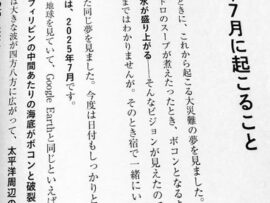 7月に起こること
ときに、これから起こる大災難の夢を見ました。
ドロのスープが煮えたったとき、ボコンとなるよ
水が盛り上がる——そんなビジョンが見えたのを
まではわかりませんが。そのとき宿で一緒にい
た同じ夢を見ました。今度は日付もしっかりと
は、2025年7月です。
地球を見ていて、Google Earthと同じといえば
フィリピンの中間あたりの海底がボコンと破裂
は大きな波が四方八方に広がって、太平洋周辺の